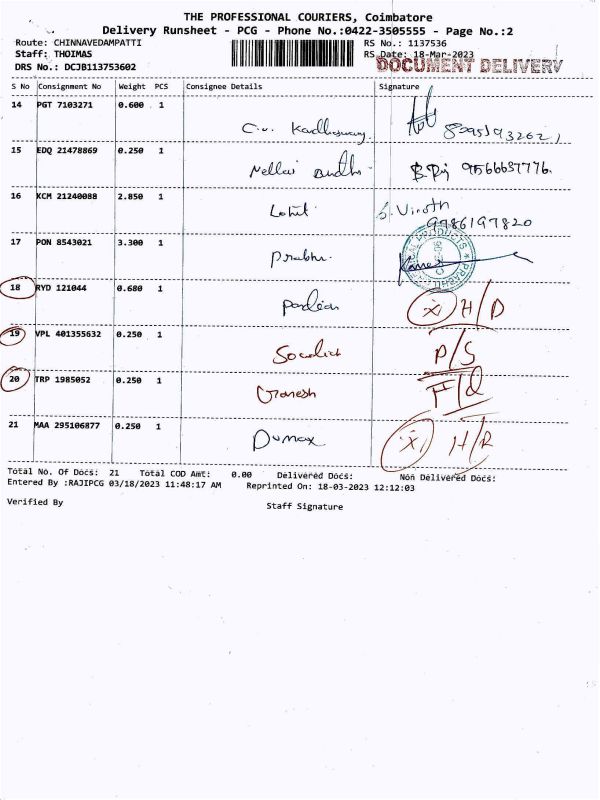 THE PROFESSIONAL COURIERS, Coimbatore
Delivery Runsheet - PCG - Phone No.:0422-3505555 - Page No.:2
Route: CHINNAVEDAMPATTI RS No.: 1137536
Staff: THOIMAS RS Date: 18-Mar-2023
DRS No.: DCJB113753602 DOCUMENT DELIVERY
S No Consignment No Weight PCS Consignee Details Signature
14 PGT 7103271 0.600 1
15 EDQ 21478869 0.250 1 Nellai
16 KCM 21240088 2.850 1 Lohit S. Viroth
9986197820
17 PON 8543021 3.300 1 Prabhu
18 RYD 121044 0.680 1 H/D
19 VPL 401355632 0.250 1 P/S
20 TRP 1985052 0.250 1 Ganesh
21 MAA 295106877 0.250 1 Dumax H/R
Total No. Of Docs: 21 Total COD Amt: 0.00 Delivered Docs: Non Delivered Docs:
Entered By :RAJIPCG 03/18/2023 11:48:17 AM Reprinted On: 18-03-2023 12:12:03
Verified By Staff Signature